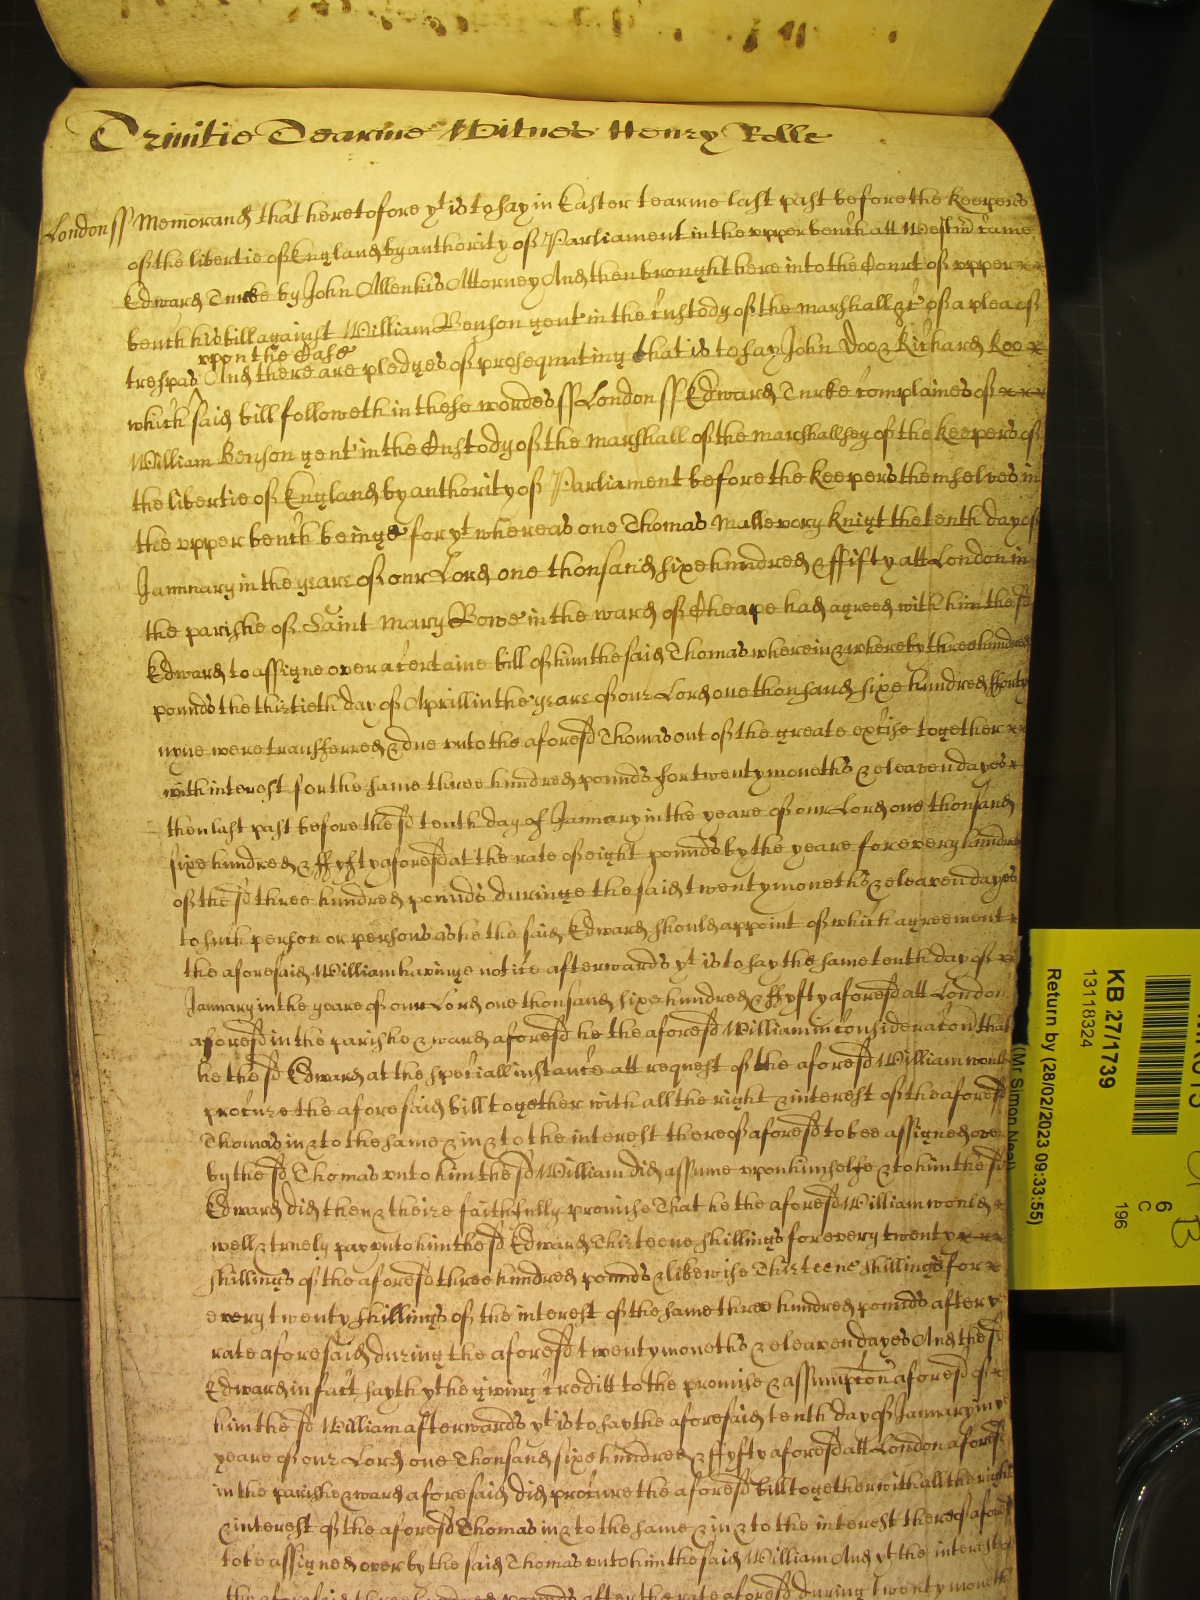 Trinitie Tearme Witnes Henry Rolle
London ss Memorand that heretofore yt is to say in Easter tearme last past before the Keepers
of the libertie of England by authority of Parliament in the upper bench att Westmr came
Edward Turke by John Allen his Attorney And then brought here into the Court of upper
bench his bill against William Benson gent in the custody of the marshall &c of a plea of
upon the Case
trespas And there are pledges of prosequuting that is to say John Doo & Richard Roo
which said bill followeth in these wordes ss London ss Edward Turke complaines of
William Benson gent in the Custody of the marshall of the marshallsey of the Keepers of
the libertie of England by authority of Parliament before the keepers themselves in
the upper bench beinge for yt whereas one Thomas Mallevory Knigt the tenth day of
January in the yeare of our Lord one thousand sixe hundred & ffifty att London in
the parishe of Saint Mary Bowe in the ward of Cheape had agreed with him the sd
Edward to assigne over a certaine bill of him the said Thomas wherein & whereby three hundred
pounds the thirtieth day of Aprill in the yeare of our Lord one thousand sixe hundred fforty
nyne were transferred & due unto the aforesd Thomas out of the greate excise together
with interest for the same three hundred pounds for twenty moneths & eleaven dayes
then last past before the sd tenth day of January in the yeare of our Lord one thousand
sixe hundred & ffyfty aforesd at the rate of eight pounds by the yeare for every hundred
of the sd three hundred pounds duringe the said twenty moneths & eleaven dayes
to such person or persons as he the said Edward should appoint of which agreement
the aforesaid William havinge notice afterwards yt is to say the same tenth day of
January in the yeare of our Lord one thousand sixe hundred & ffyfty aforesd att London
aforesd in the parishe & ward aforesd he the aforesd William in consideracon that
he the sd Edward at the speciall instance att request of the aforesd William would
procure the aforesaid bill together with all the right & interest of the aforesd
Thomas in & to the same & in & to the interest thereof aforesd to bee assigned over
by the sd Thomas unto him the sd William did assume upon himselfe & to him the sd
Edward did then & theire faithfully promise That he the aforesd William would
well & truely pay unto him the sd Edward Thirteene shillings for every twenty
shillings of the aforesd three hundred pounds & likewise Thirteene shillings for
every twenty shillings of the interest of the same three hundred pounds after ye
rate aforesaid during the aforesd twenty moneths & eleaven dayes And the sd
Edward in fact sayth yt he giving creditt to the promise & assumpcon aforesd of
him the sd William afterwards yt is to say the aforesaid tenth day of January in ye
yeare of our Lord one Thousand sixe hundred & ffyfty aforesd att London aforesd
in the parishe & ward aforesaid did procure the aforesd bill together with all the right
& interest of the aforesd Thomas in & to the same & in & to the interest thereof aforesd
to be assigned over by the said Thomas unto him the said William And yt the interest
the aforesaid three hundred pounds after the rate aforesd during twenty moneth
KB 27/1739
13118324
Return by (28/02/2023 09:33:55)
(Mr Simon Neal)
6
C
196